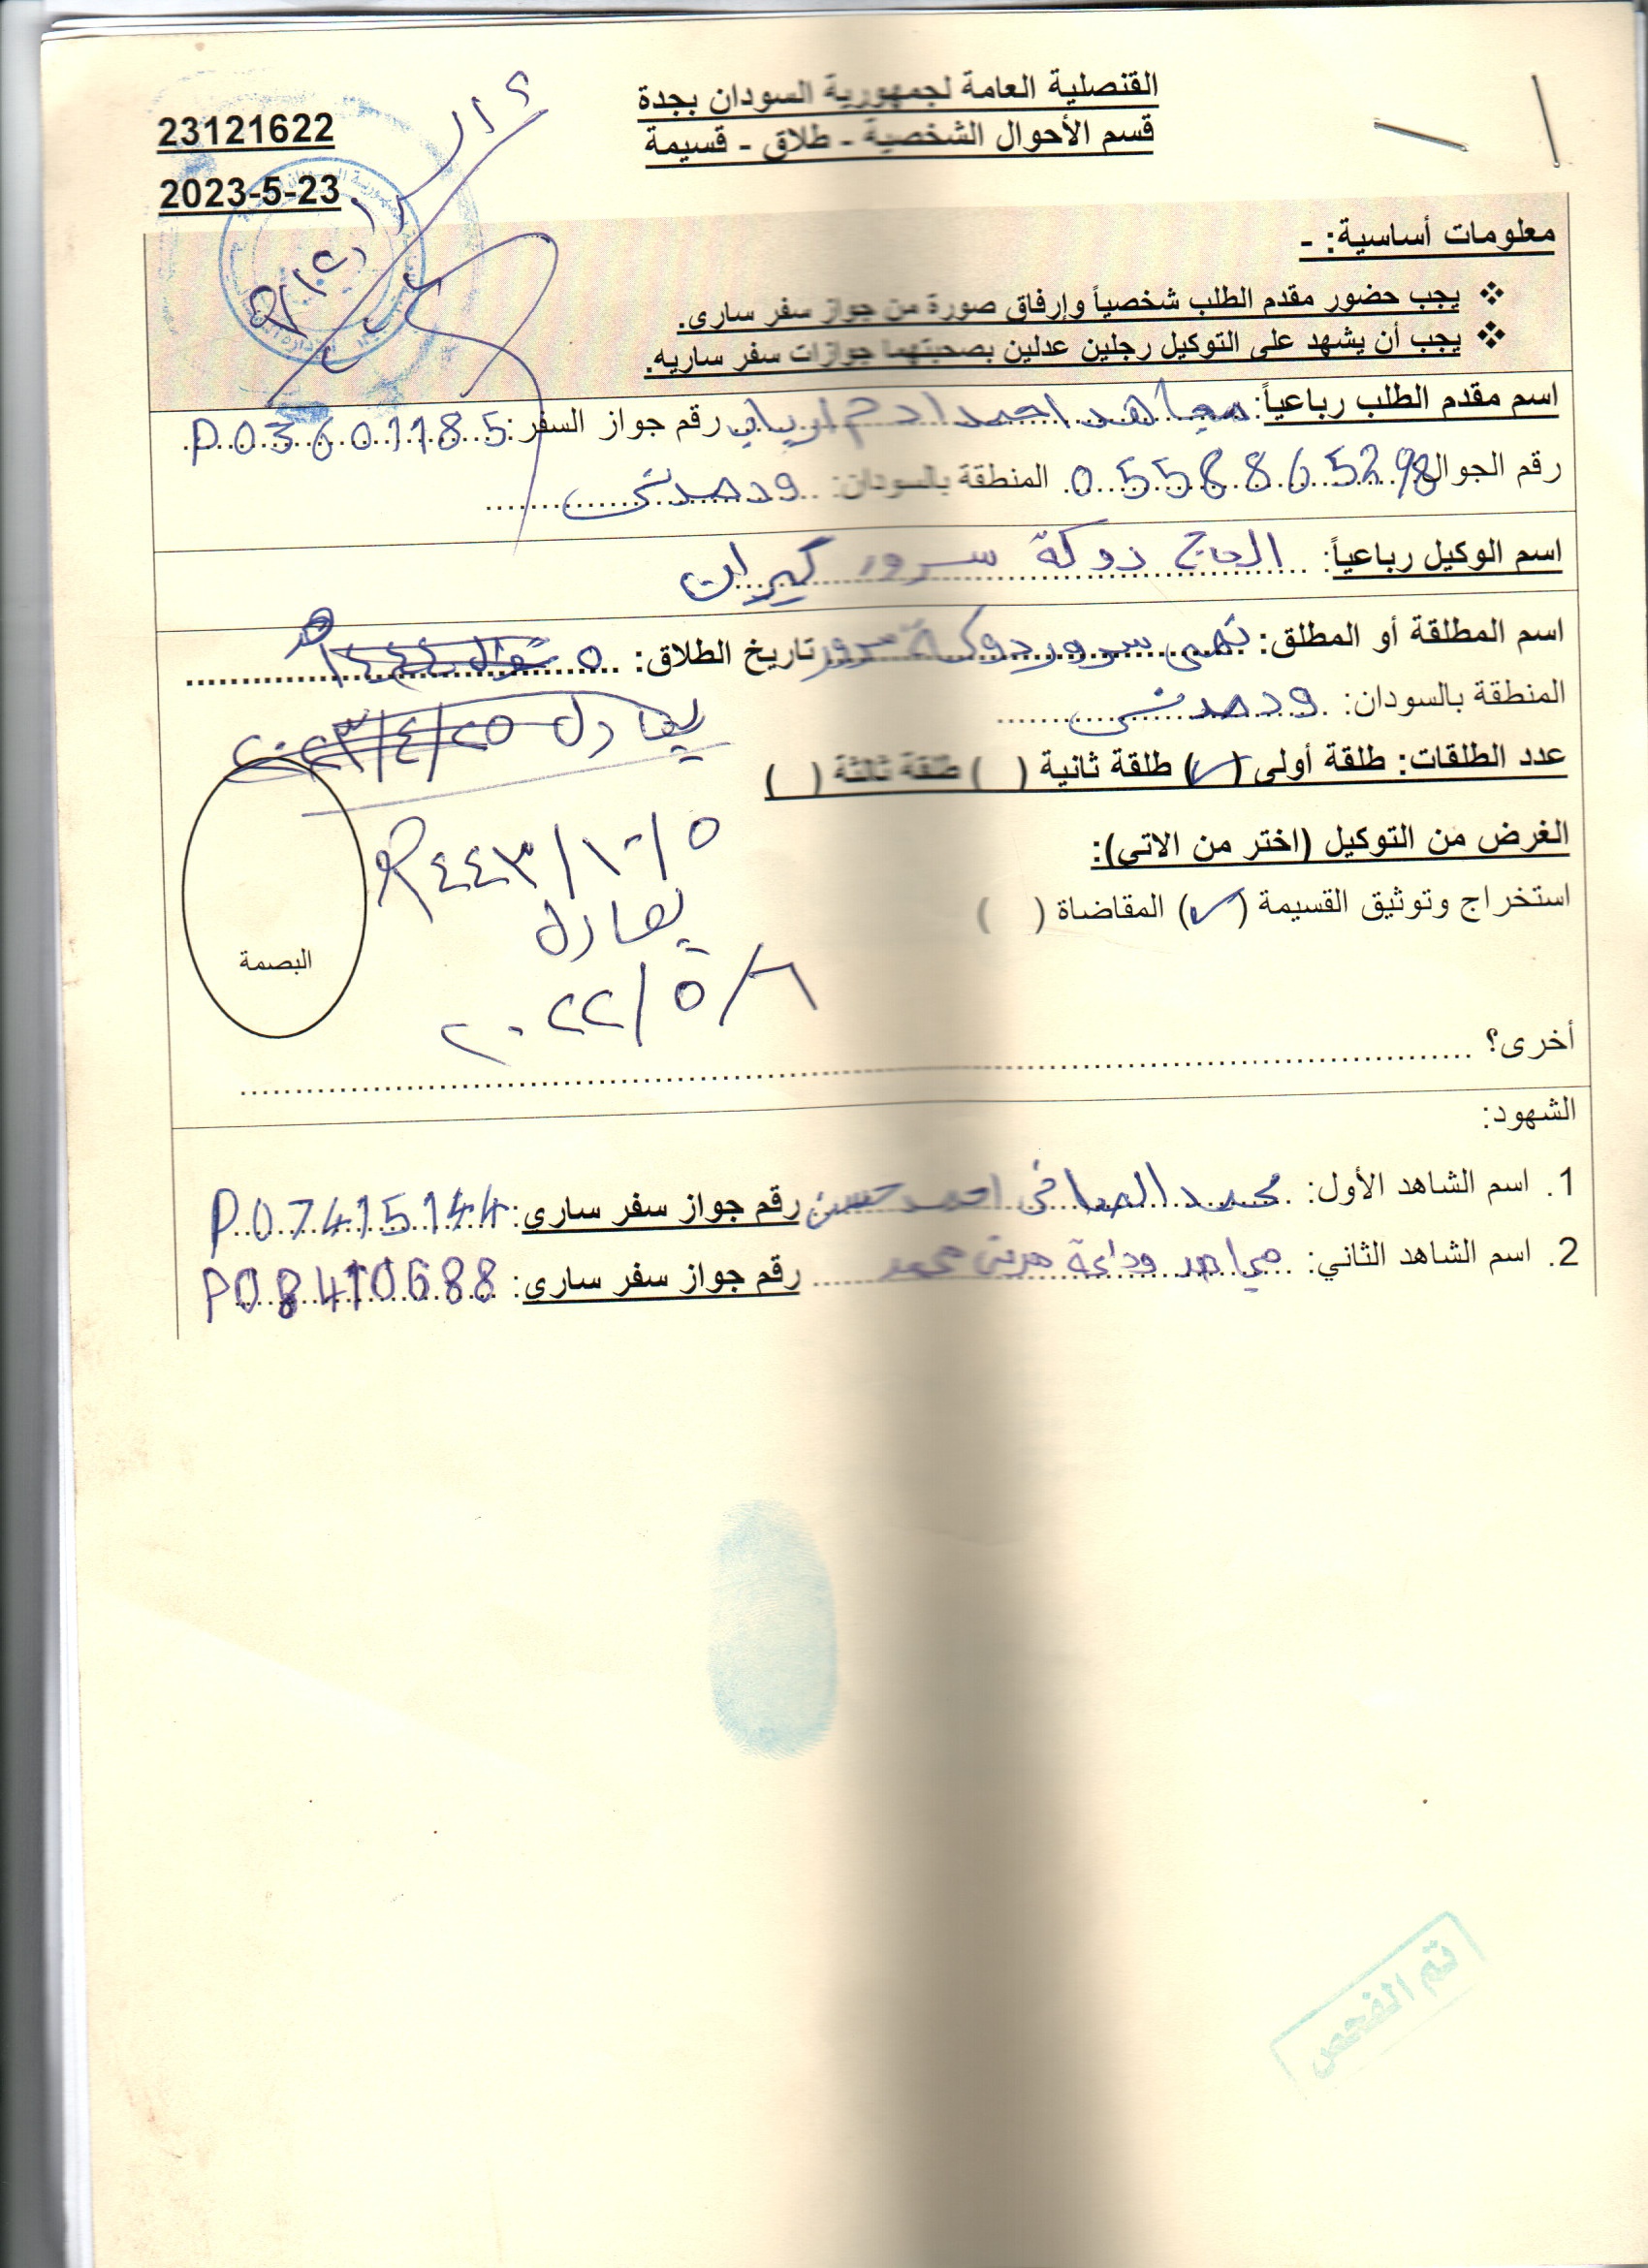 القنصلية العامة لجمهورية السودان بجدة
قسم الأحوال الشخصية - طلاق - قسيمة
23121622
2023-5-23
معلومات أساسية: -
❖ يجب حضور مقدم الطلب شخصياً وإرفاق صورة من جواز سفر سارى.
❖ يجب أن يشهد على التوكيل رجلين عدلين بصحبتهما جوازات سفر ساريه.
اسم مقدم الطلب رباعياً: مجاهد احمد ادم ارباب رقم جواز السفر: P03601185
رقم الجوال 0558865298 المنطقة بالسودان: ودمدني
اسم الوكيل رباعياً: الحاج دوكة سرور كيران
اسم المطلقة أو المطلق: تهنى سرور دوكة سرور تاريخ الطلاق: ٥ شوال ١٤٤٤هـ
المنطقة بالسودان: ودمدنى
يعادل ٢٠٢٣/٤/٢٥
عدد الطلقات: طلقة أولى (✓) طلقة ثانية ( ) طلقة ثالثة ( )
٥/١٠/١٤٤٣هـ
الغرض من التوكيل (اختر من الاتى):
يعادل
استخراج وتوثيق القسيمة (✓) المقاضاة ( )
البصمة
٦/٥/٢٠٢٢
أخرى؟
الشهود:
1. اسم الشاهد الأول: محمد الصافى احمد حسن رقم جواز سفر سارى: P07415144
2. اسم الشاهد الثاني: مجاهد وداعة محمد رقم جواز سفر سارى: P08410688
تم الفحص